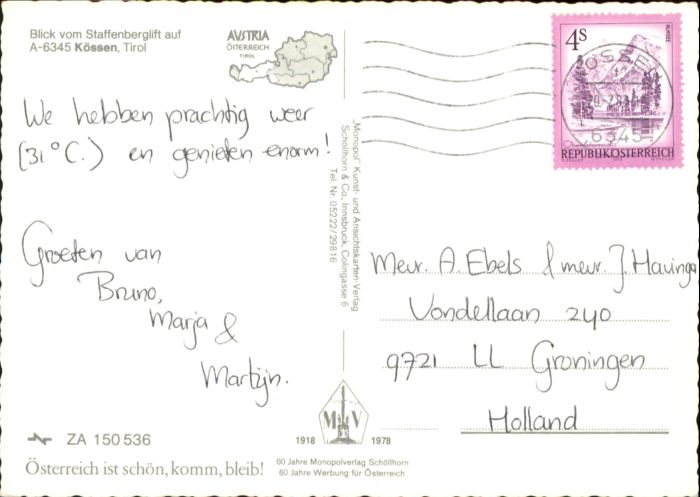 Blick vom Staffenberglift auf
A-6345 Kössen, Tirol
AVSTRIA
ÖSTERREICH
TIROL
We hebben prachtig weer
(31°C.) en genieten enorm!
Groeten van
Bruno,
Marja &
Martijn.
ZA 150 536
Österreich ist schön, komm, bleib!
„Monopol" Kunst- und Ansichtskarten-Verlag
Schöllhorn & Co, Innsbruck, Colingasse 6
Tel. Nr. 05222/29816
M V
1918 1978
60 Jahre Monopolverlag Schöllhorn
60 Jahre Werbung für Österreich
4S
ALMSEE
KÖSSEN
6345
REPUBLIK ÖSTERREICH
Mevr. A. Ebels & mevr. J. Havinga
Vondellaan 240
9721 LL Groningen
Holland